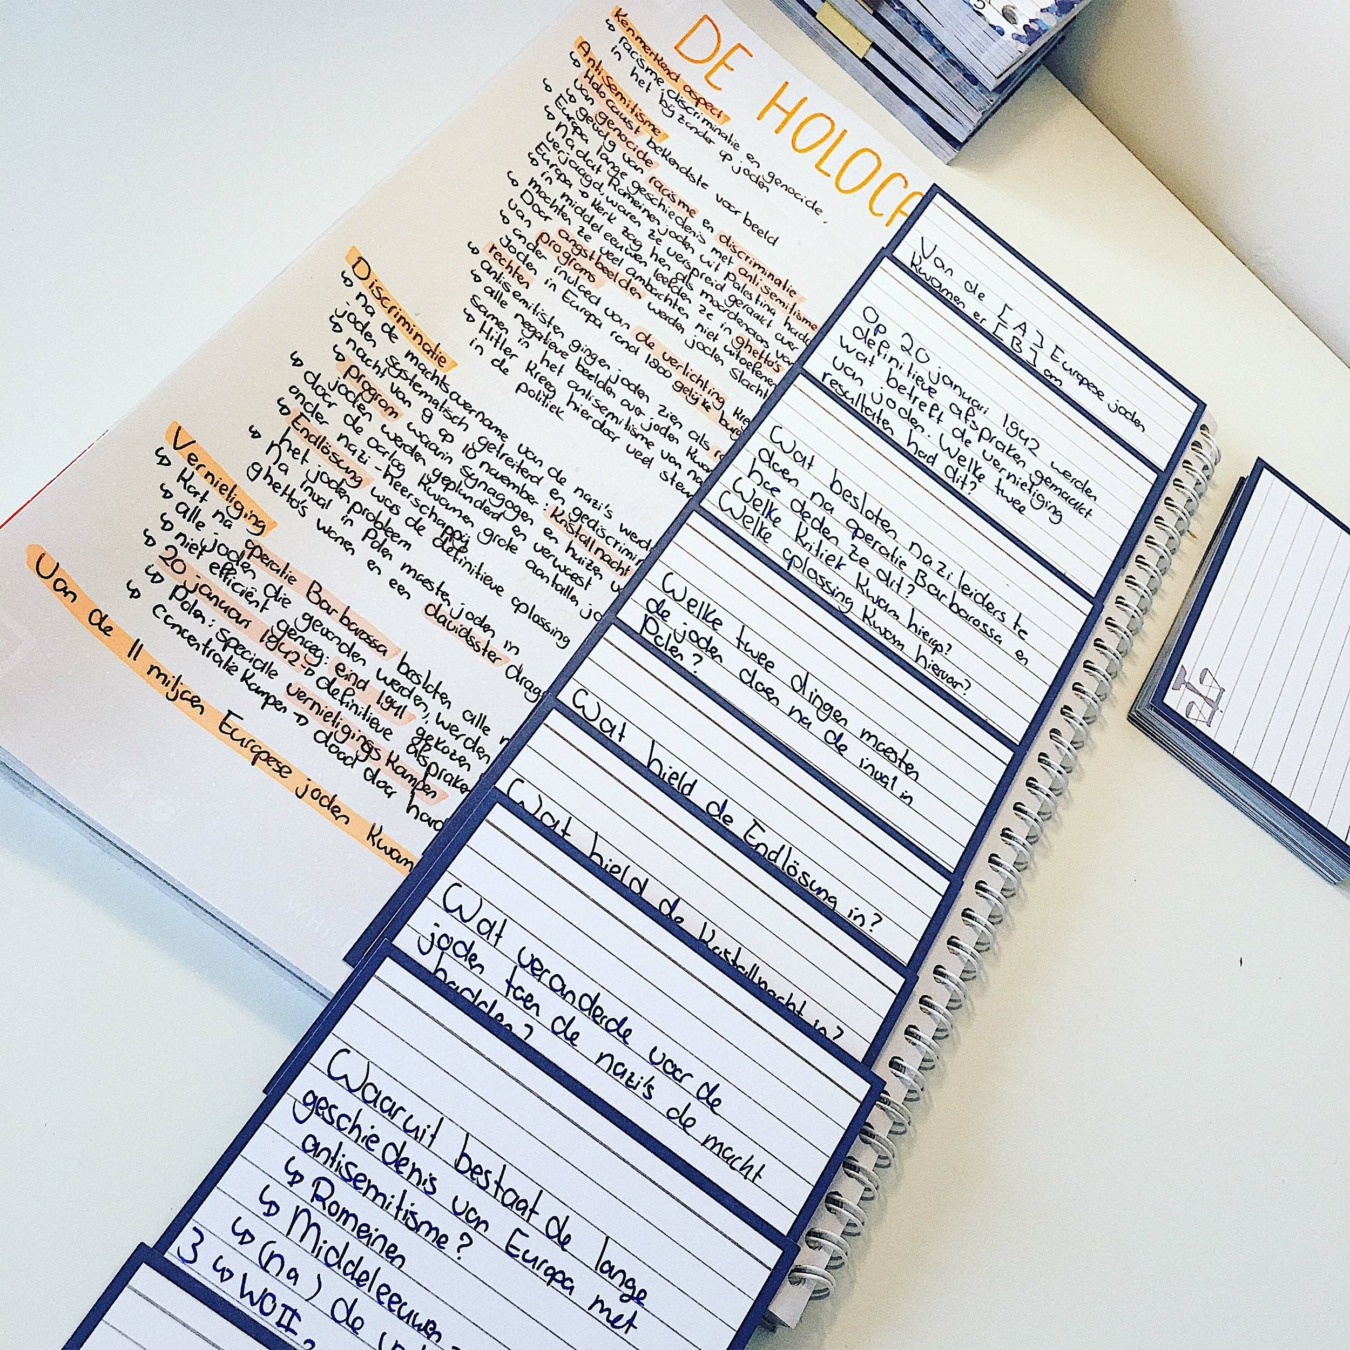 DE HOLOCA
Kenmerkend aspect
↳ racisme, discriminatie en genocide,
in het bijzonder op joden
Antisemitisme
↳ Holocaust bekendste voorbeeld
van genocide
↳ Gevolg van racisme en discriminatie
Europa lange geschiedenis met antisemitisme
↳ Nadat Romeinen joden uit Palestina hadd
verjaagd, waren ze verspreid geraakt over
Europa → Kerk zag hen als moordenaars va
↳ in middeleeuwen leefden ze in ghetto's
mochten ze veel ambachten niet uitoefene
↳ Door angstbeelden werden joden slacht
van progroms
↳ onder invloed van de verlichting kre
joden in Europa rond 1800 gelijke bur
rechten
↳ antisemitisten gingen joden zien als r
↳ alle negatieve beelden over joden kwa
samen in het antisemitisme van na
↳ Hitler kreeg hierdoor veel stem
in de politiek
Discriminatie
↳ na de machtsovername van de nazi's werd
joden systematisch getreiterd en gediscrimin
↳ nacht van 9 op 10 november: Kristallnacht
↳ progrom waarin synagogen en huizen v
joden werden geplunderd en verwoest
↳ door de oorlog kwamen grote aantallen jo
onder nazi-heerschappij
↳ Endlösung was de definitieve oplossing
het joden probleem
↳ na inval in Polen moesten joden in
ghetto's wonen en een davidsster drag
Vernietiging
↳ Kort na operatie Barbarossa besloten alle n
↳ alle joden die gevonden werden, werden
↳ niet efficiënt genoeg: eind 1941 gekozen
↳ 20 januari 1942 → definitieve afspraken
↳ Polen: speciale vernietigingskampen
↳ concentratiekampen → dood door hard
Van de 11 miljoen Europese joden kwam
Van de [A] Europese joden
kwamen er [B] om
Op 20 januari 1942 werden
definitieve afspraken gemaakt
wat betreft de vernietiging
van joden. Welke twee
resultaten had dit?
Wat besloten nazileiders te
doen na operatie Barbarossa en
hoe deden ze dit?
Welke kritiek kwam hierop?
Welke oplossing kwam hiervoor?
Welke twee dingen moesten
de joden doen na de inval in
Polen?
Wat hield de Endlösung in?
Wat hield de Kristallnacht in?
Wat veranderde voor de
joden toen de nazi's de macht
hadden?
Waaruit bestaat de lange
geschiedenis van Europa met
antisemitisme?
↳ Romeinen
↳ Middeleeuwen
↳ (na) de
3 ↳ WOII?